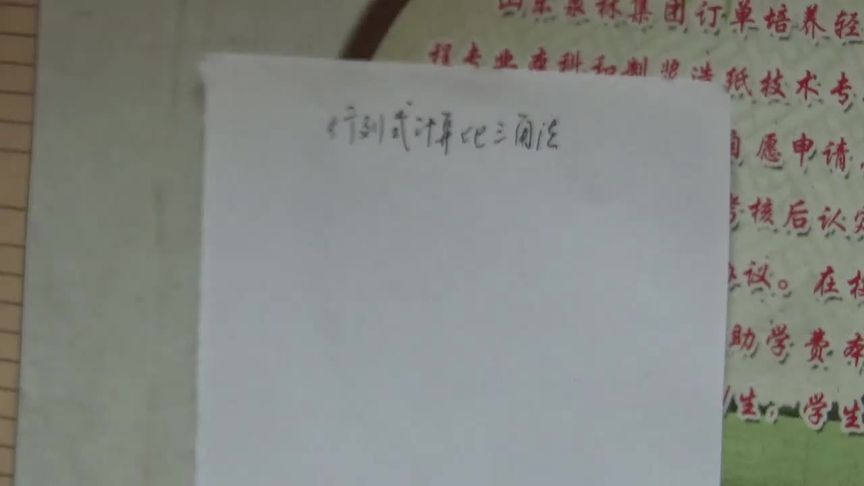 山东泉林集团订单培养轻
程专业本科和制浆造纸技术专
自愿申请
考核后认定
协议。在校
助学费本
生，学生
行列式计算化三角法